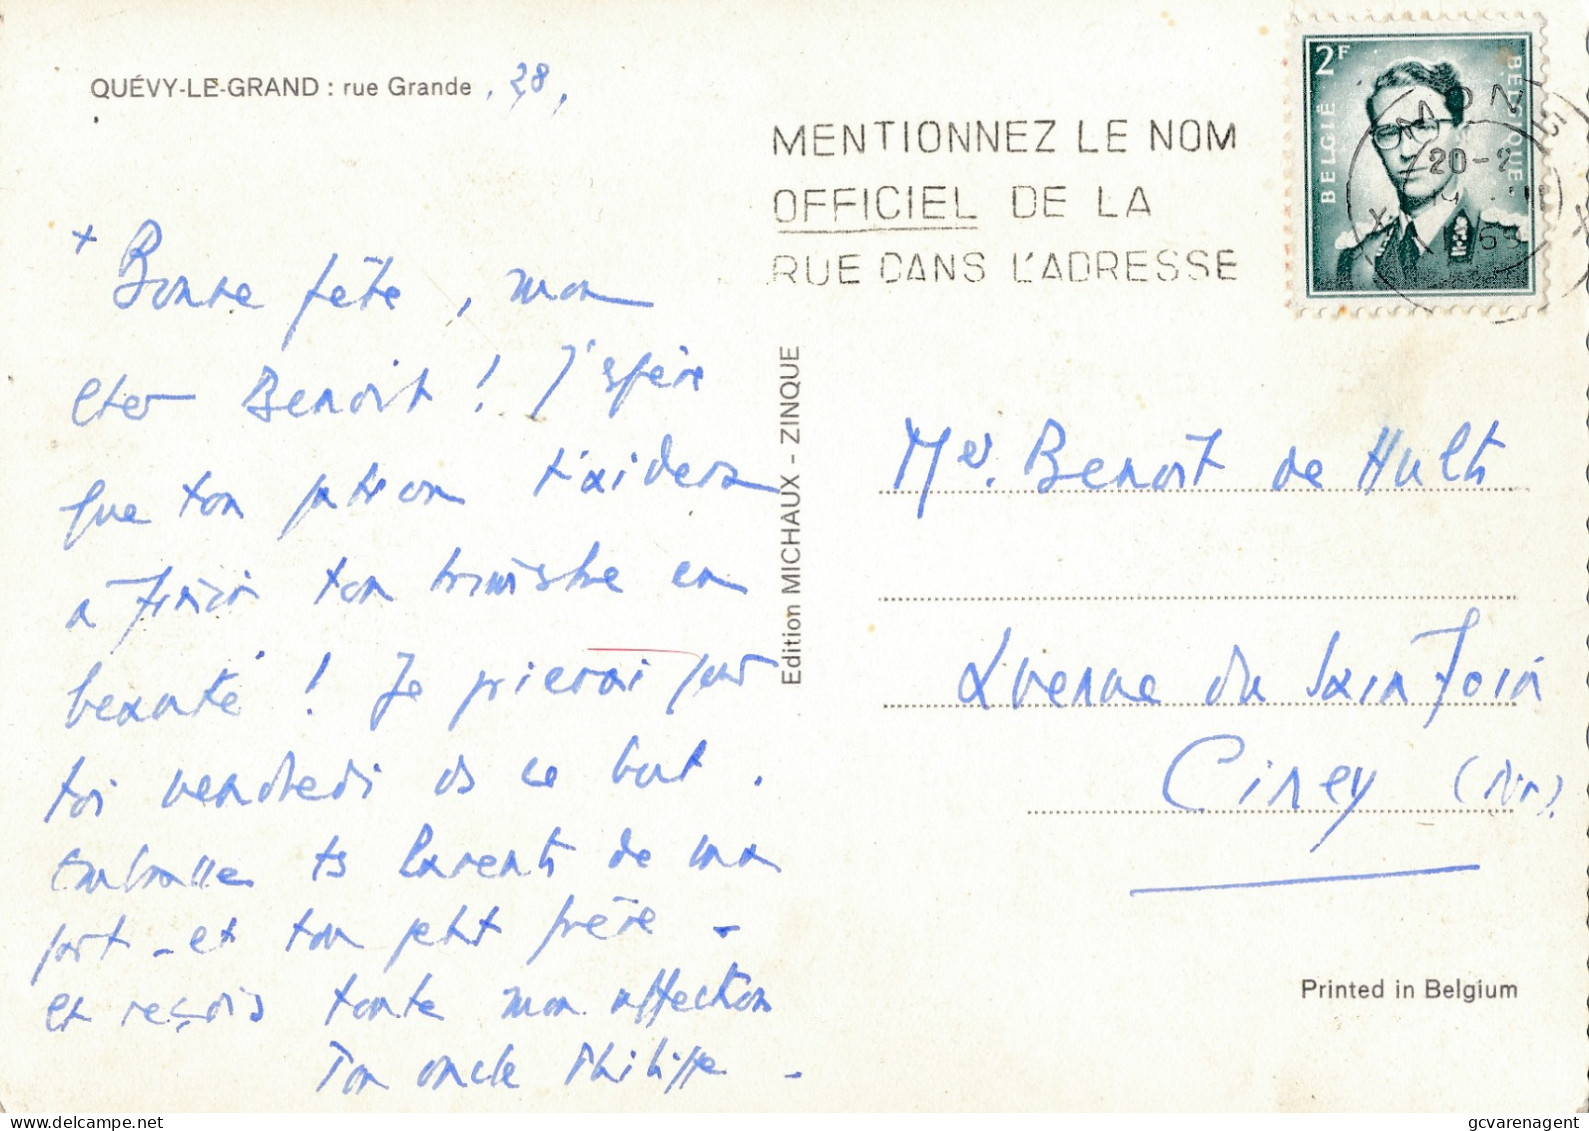 QUÉVY-LE-GRAND : rue Grande , 28,
+ Bonne fête, mon
cher Benoit ! J'espère
que ton patron t'aidera
à finir ton trimistre en
beauté ! Je prierai pour
toi vendredi ds ce but.
Embrasse ts Parents de ma
part - et ton petit frère -
et reçois toute mon affection
Ton oncle Philippe -
Edition MICHAUX - ZINQUE
MENTIONNEZ LE NOM
OFFICIEL DE LA
RUE DANS L'ADRESSE
2F
BELGIË
BELGIQUE
MONS
20-2
Mr. Benoit de Hults
Avenue du Sainfoin
Ciney (Nr).
Printed in Belgium
gcvarenagent